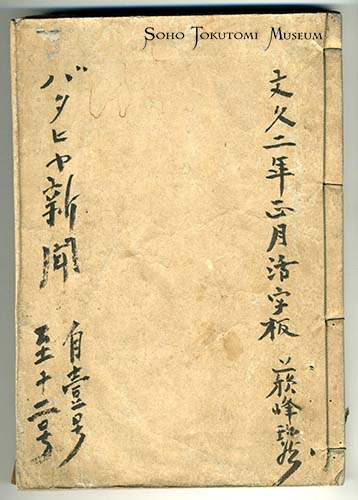 SOHO TOKUTOMI MUSEUM
文久二年正月活字板 蘇峰
バタヒヤ新聞
自壹号
至十二号